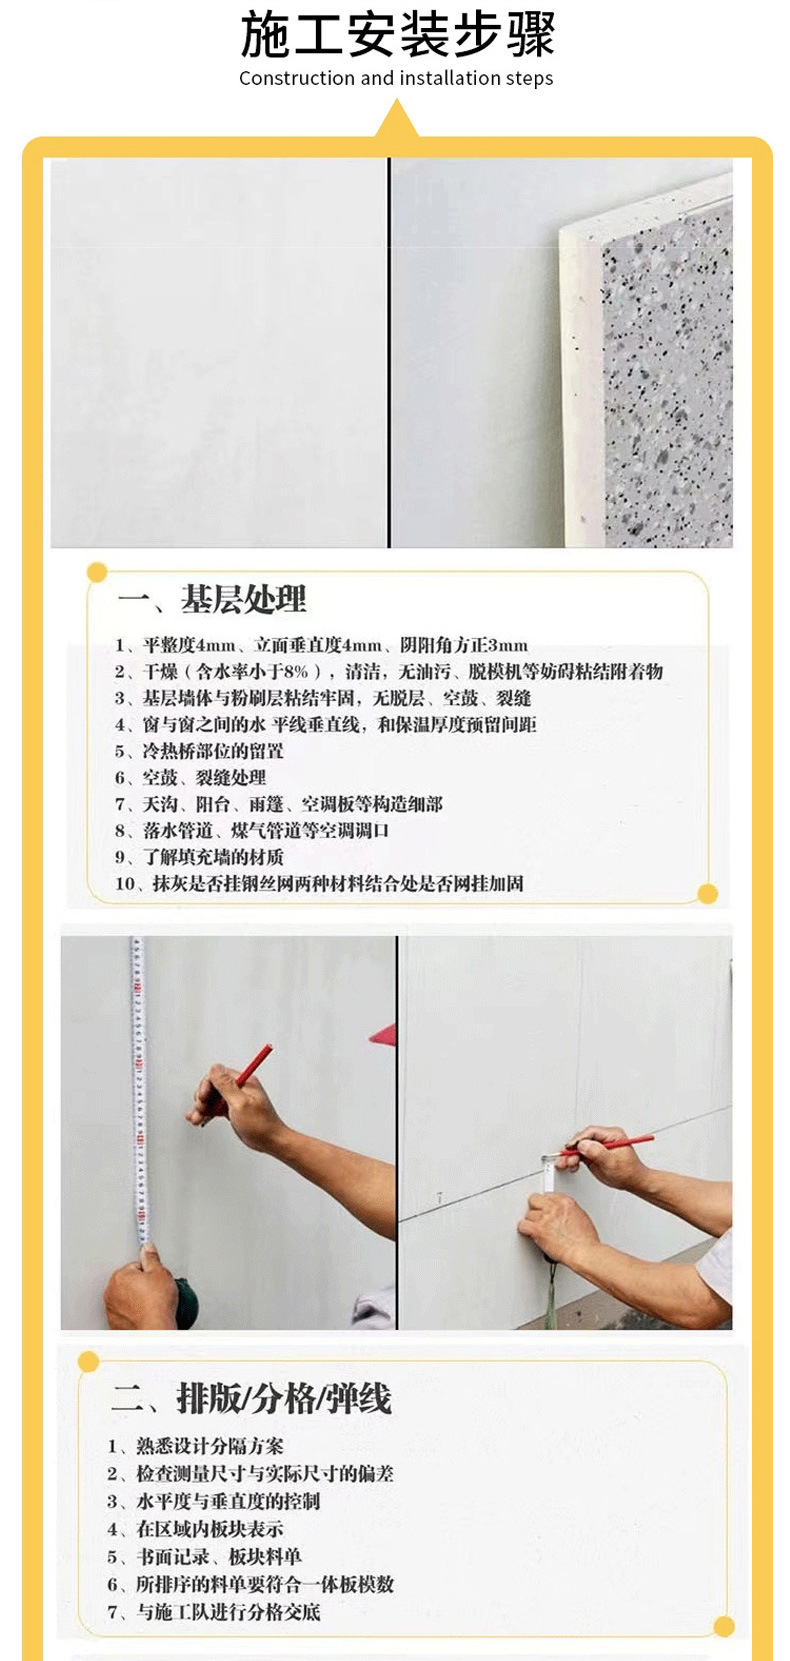 施工安装步骤
Construction and installation steps
一、基层处理
1、平整度4mm、立面垂直度4mm、阴阳角方正3mm
2、干燥（含水率小于8%），清洁，无油污、脱模机等妨碍粘结附着物
3、基层墙体与粉刷层粘结牢固，无脱层、空鼓、裂缝
4、窗与窗之间的水 平线垂直线，和保温厚度预留间距
5、冷热桥部位的留置
6、空鼓、裂缝处理
7、天沟、阳台、雨篷、空调板等构造细部
8、落水管道、煤气管道等空调调口
9、了解填充墙的材质
10、抹灰是否挂钢丝网两种材料结合处是否网挂加固
二、排版/分格/弹线
1、熟悉设计分隔方案
2、检查测量尺寸与实际尺寸的偏差
3、水平度与垂直度的控制
4、在区域内板块表示
5、书面记录、板块料单
6、所排序的料单要符合一体板模数
7、与施工队进行分格交底